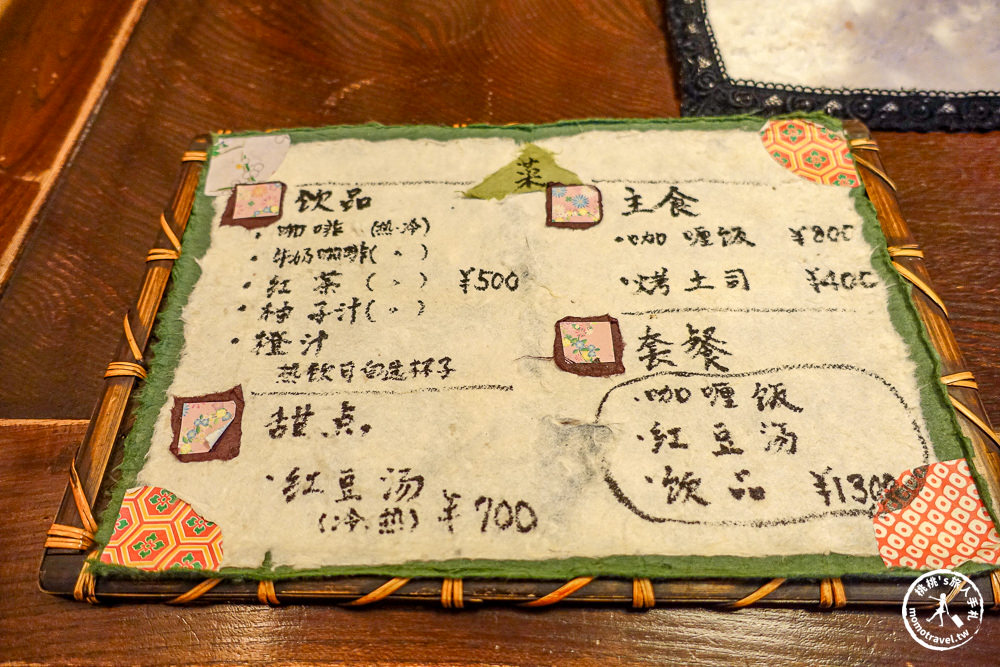 菜
饮品
·咖啡 (热·冷)
·牛奶咖啡( 〃 )
·红茶( 〃 ) ¥500
·柚子汁( 〃 )
·橙汁
热饮可自选杯子
甜点。
·红豆汤
(冷、热) ¥700
主食
·咖喱饭 ¥800
·烤土司 ¥400
套餐
·咖喱饭
·红豆汤
·饮品 ¥1300
桃桃's旅人手札
momotravel.tw